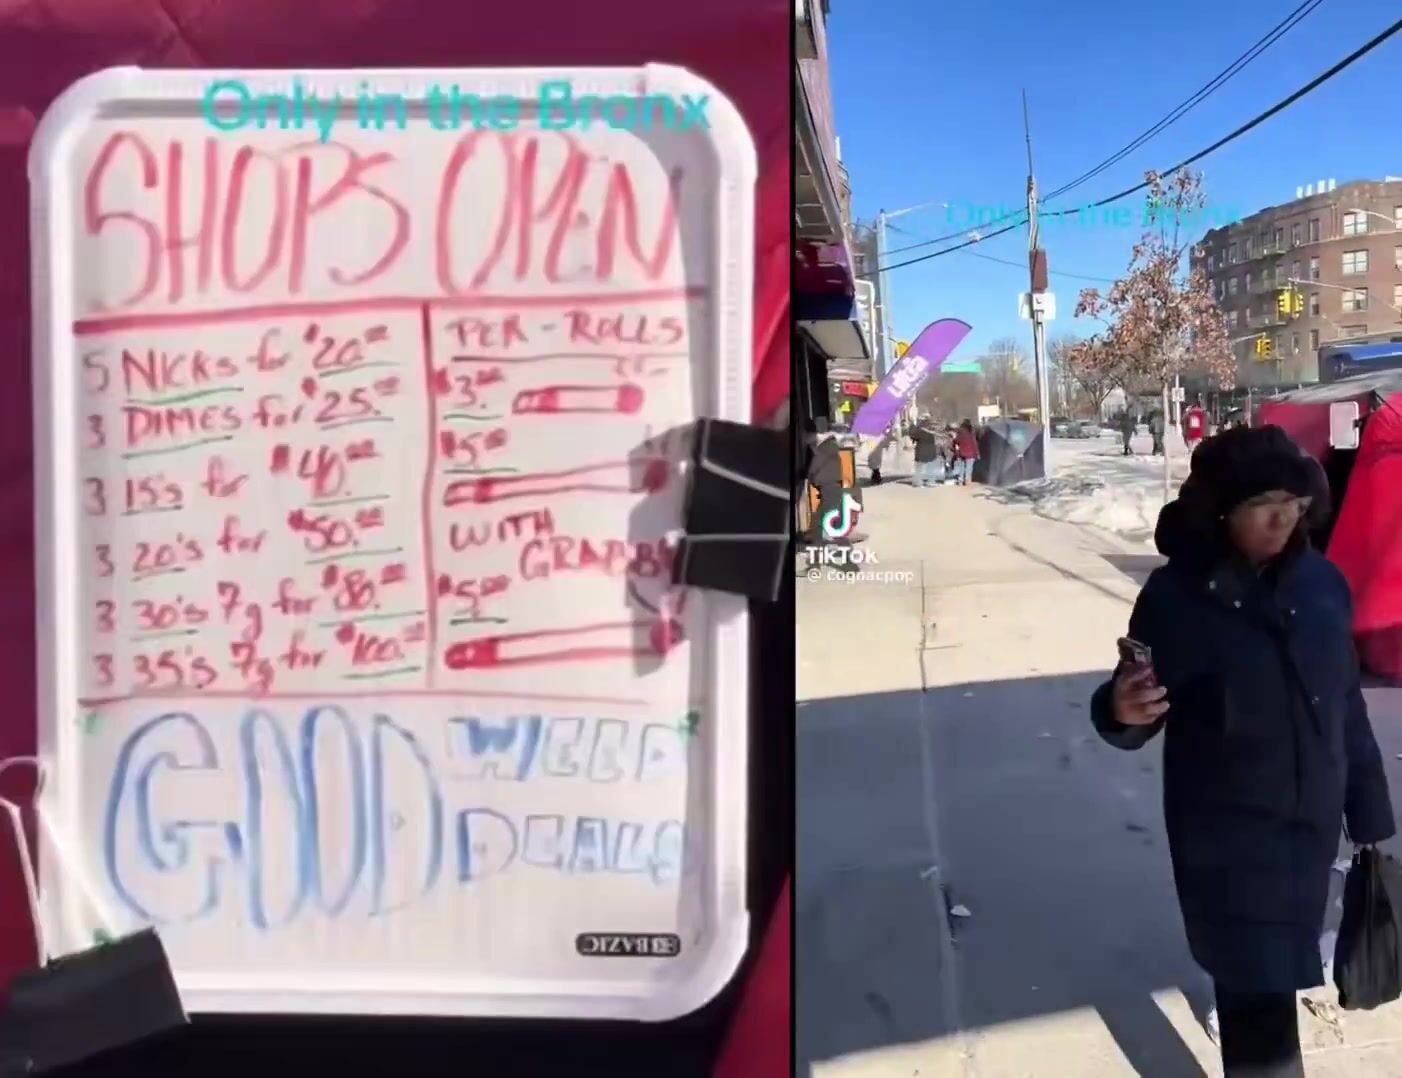 Only in the Bronx
SHOPS OPEN
5 NICKS for $20.00
3 DIMES for $25.00
3 15's for $40.00
3 20's for $50.00
3 30's 7g for $80.00
3 35's 7g for $100.00
PER-ROLLS
$3.00
$5.00
WITH
GRABBA
$5.00
GOOD WEED
DEALS
BAZIC
Only in the Bronx
TikTok
@cognacpop